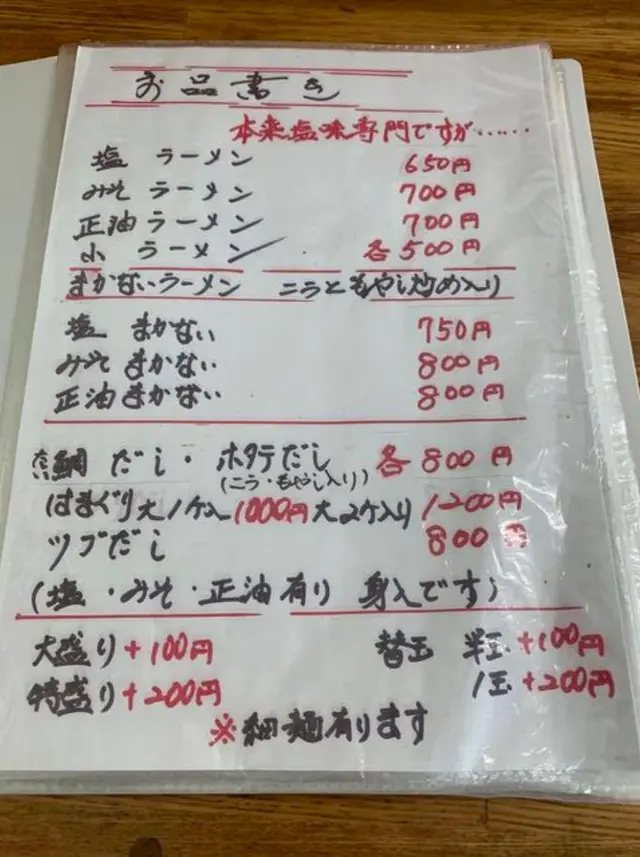 お品書き
本来塩味専門ですが……
塩 ラーメン 650円
みそ ラーメン 700円
正油 ラーメン 700円
小 ラーメン 各500円
まかないラーメン ニラともやし炒め入り
塩 まかない 750円
みそ まかない 800円
正油 まかない 800円
真鯛 だし・ホタテだし 各800円
(ニラ・もやし入り)
はまぐり大1ケ入1000円大2ケ入り1200円
ツブだし 800円
(塩・みそ・正油有り 身入です)
大盛り+100円 替玉 半玉+100円
特盛り+200円 1玉+200円
※細麺有ります